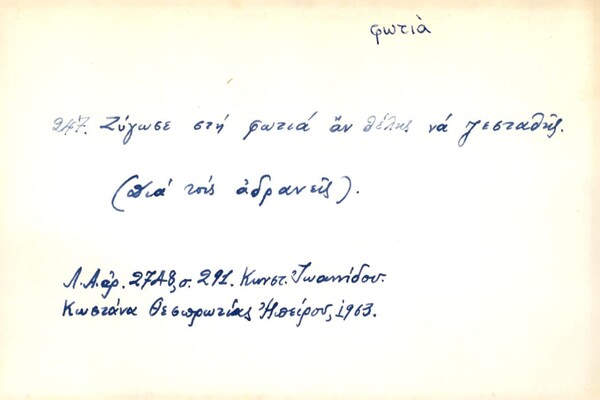 φωτιὰ
247. Ζύγωσε στή φωτιά ἄν θέλης νά ζεσταθῆς.
(Γιά τούς ἀδρανεῖς).
Λ.Α.ἀρ. 2748, σ. 291. Κωνστ. Ἰωαννίδου.
Κωστάνα Θεσπρωτίας Ἠπείρου, 1963.